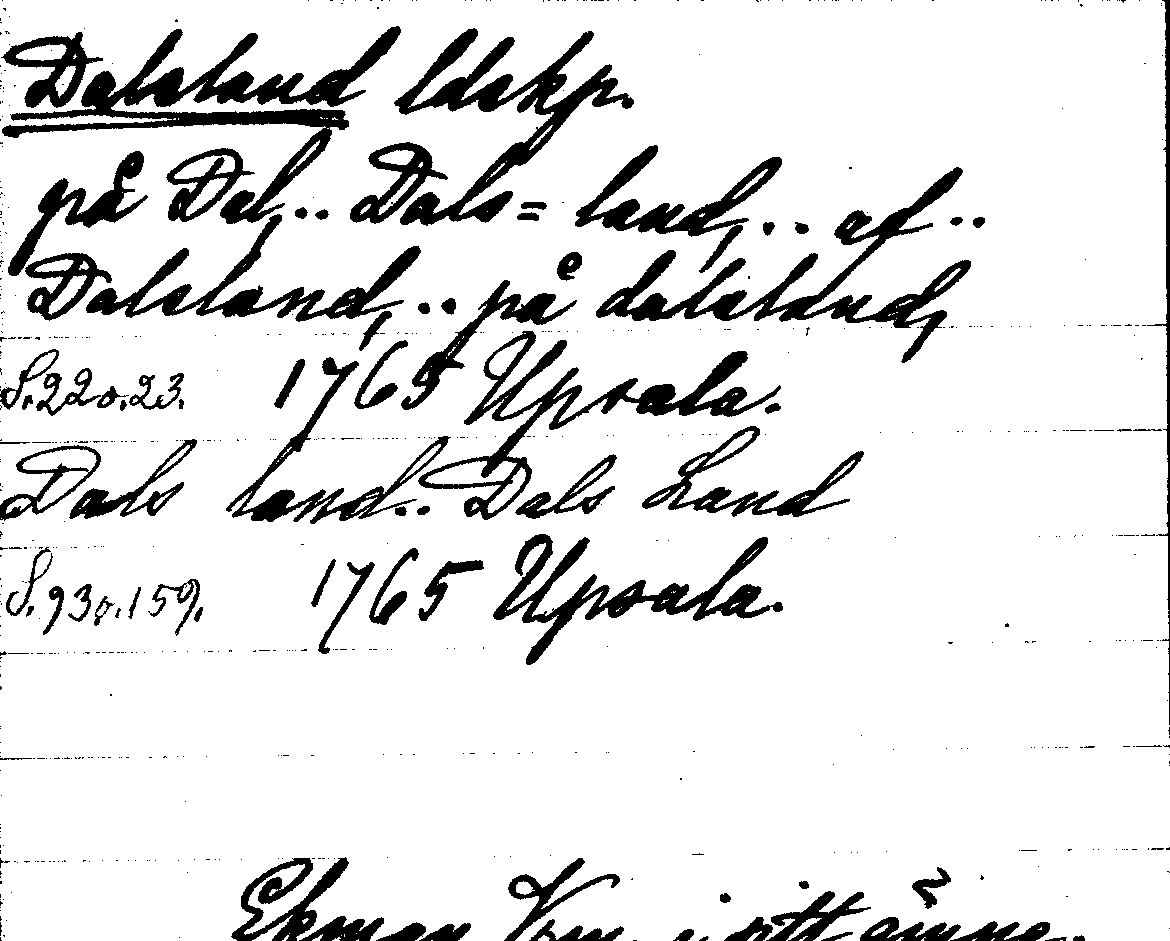 Dalsland ldskp.
på Dal,.. Dals= land,.. af..
Dalsland,.. på dalsland,
S. 22 o. 23. 1765 Upsala.
Dals land.. Dals Land
S. 93 o. 159. 1765 Upsala.
Ekman Vrm. i sitt ämne.